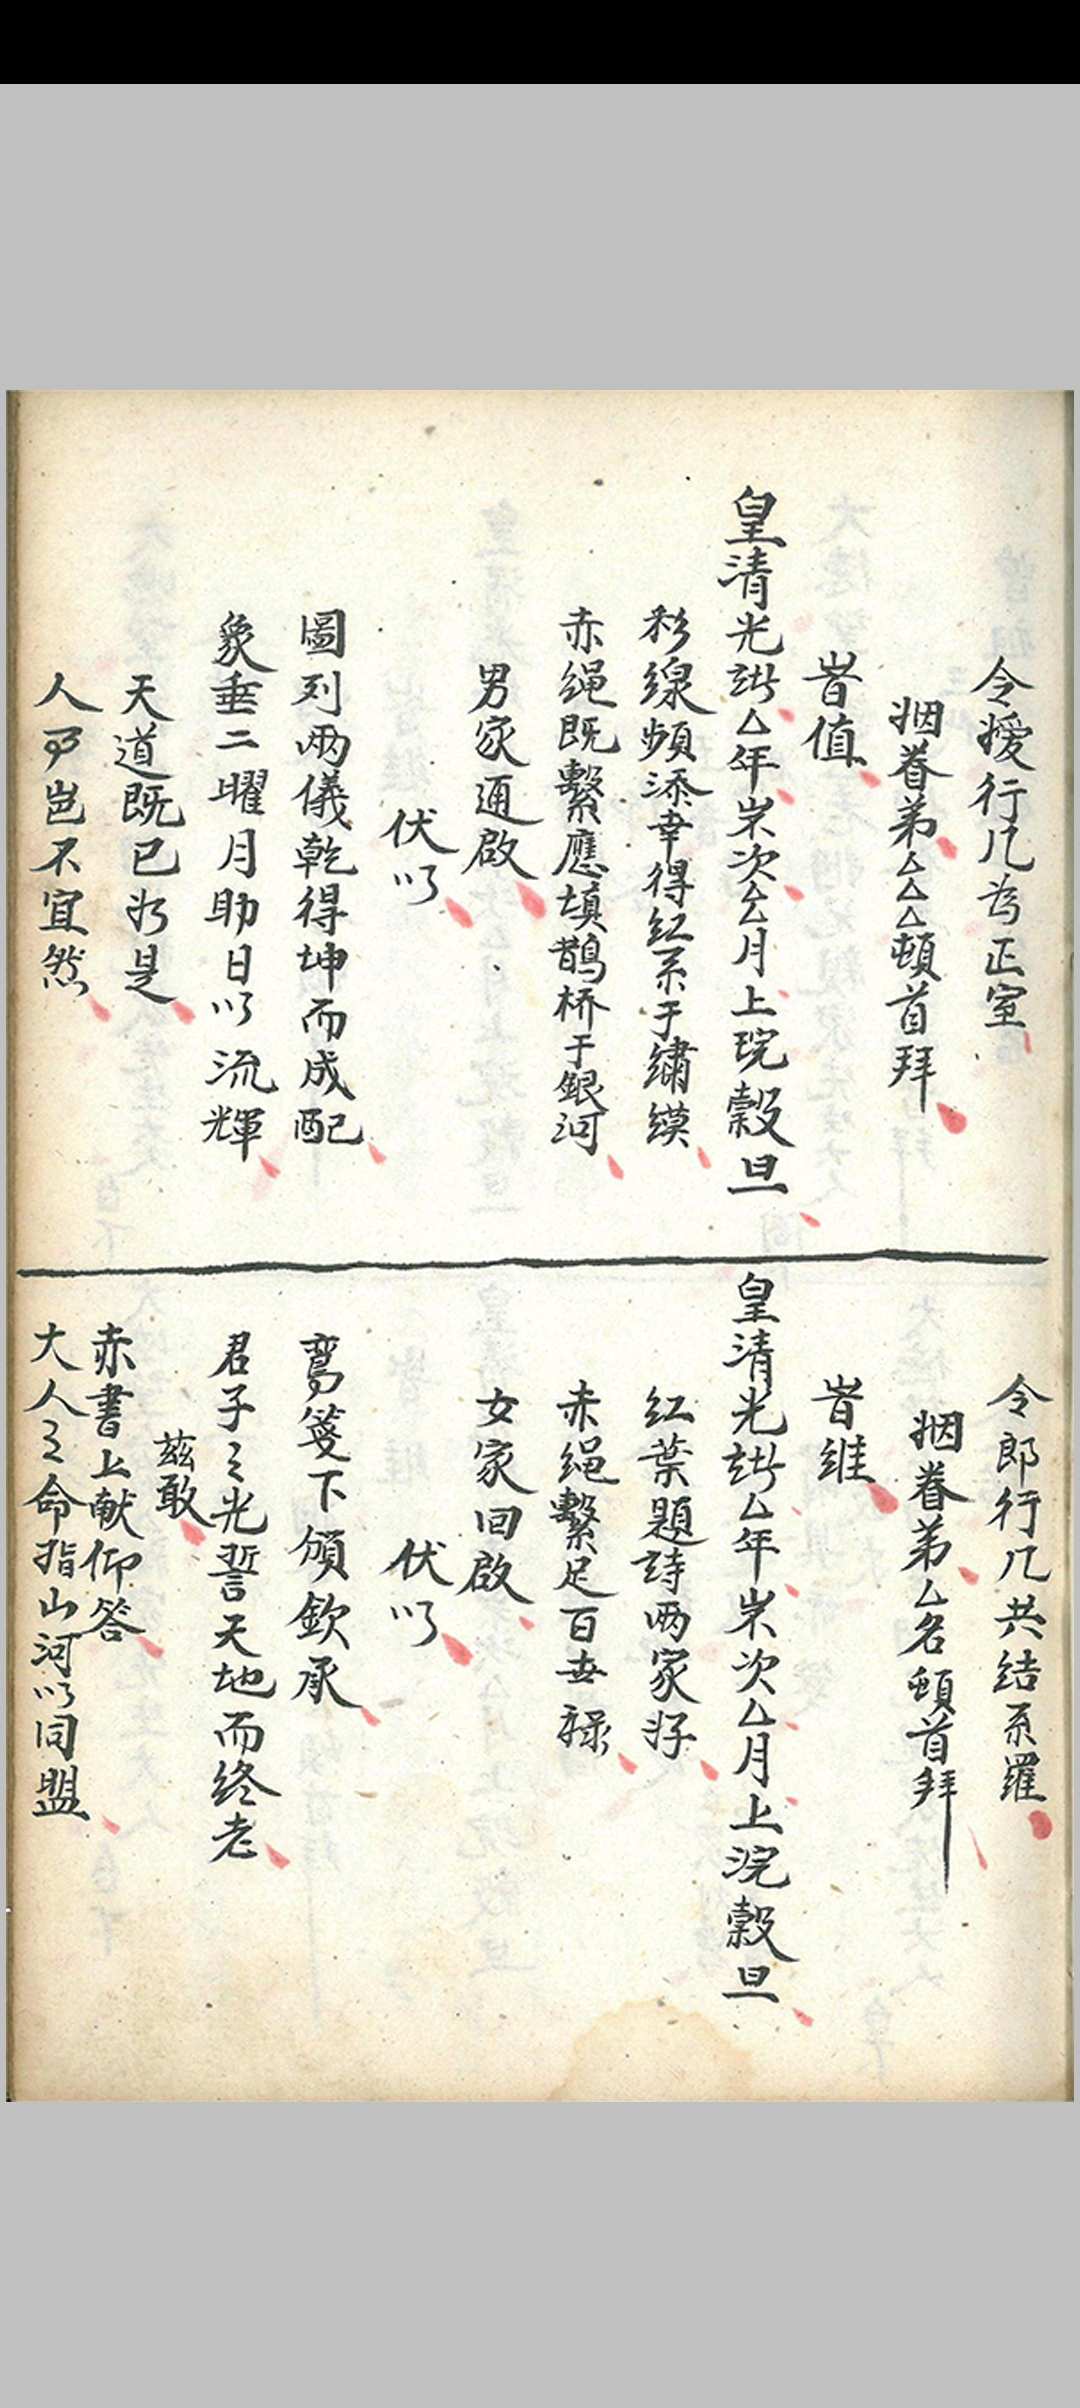 令嫒行几为正室
姻眷弟厶厶厶頓首拜
旹值
皇清光緒厶年嵗次厶月上浣穀旦
彩線頻添幸得红系于繡幙
赤绳既繫應填鵲桥于銀河
男家通啟
伏以
圖列两儀乾得坤而成配
象垂二曜月助日以流輝
天道既已如是
人事岂不宜然
令郎行几共结系羅
姻眷弟厶名頓首拜
旹維
皇清光緒厶年嵗次厶月上浣穀旦
红葉題詩两家好
赤绳繫足百世禄
女家回啟
伏以
鸾箋下頒欽承
君子之光誓天地而终老
兹敢
赤書上献仰答
大人之命指山河以同盟